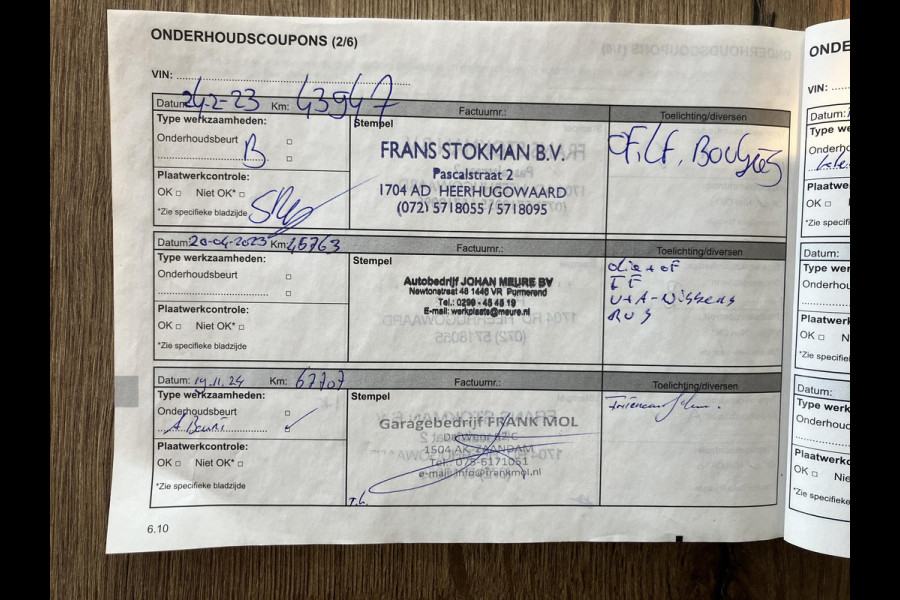 ONDERHOUDSCOUPONS (2/6)
VIN:
Datum: 24-2-23 Km: 43947 Factuurnr.: Toelichting/diversen
Type werkzaamheden:
Onderhoudsbeurt B
Plaatwerkcontrole:
OK Niet OK*
*Zie specifieke bladzijde
Stempel
FRANS STOKMAN B.V.
Pascalstraat 2
1704 AD HEERHUGOWAARD
(072) 5718055 / 5718095
OF, LF, Bougies
Datum: 20-04-2023 Km: 45763 Factuurnr.: Toelichting/diversen
Type werkzaamheden:
Onderhoudsbeurt
Plaatwerkcontrole:
OK Niet OK*
*Zie specifieke bladzijde
Stempel
Autobedrijf JOHAN MEURE BV
Newtonstraat 48 1446 VR Purmerend
Tel.: 0299 - 46 46 19
E-mail: werkplaats@meure.nl
olie + oF
IF
V+A-Wissers
Datum: 19.11.24 Km: 67707 Factuurnr.: Toelichting/diversen
Type werkzaamheden:
Onderhoudsbeurt
A Beurt
Plaatwerkcontrole:
OK Niet OK*
*Zie specifieke bladzijde
Stempel
Garagebedrijf FRANK MOL
1504 AK ZAANDAM
Tel.: 075-6171061
e-mail: info@frankmol.nl
6.10
ONDE
VIN:
Datum:
Type we
Onderho
Plaatwer
OK
*Zie specifi
Datum:
Type wer
Onderhou
Plaatwerk
OK N
*Zie specifie
Datum:
Type werk
Onderhoud
Plaatwerkc
OK Nie
*Zie specifiek